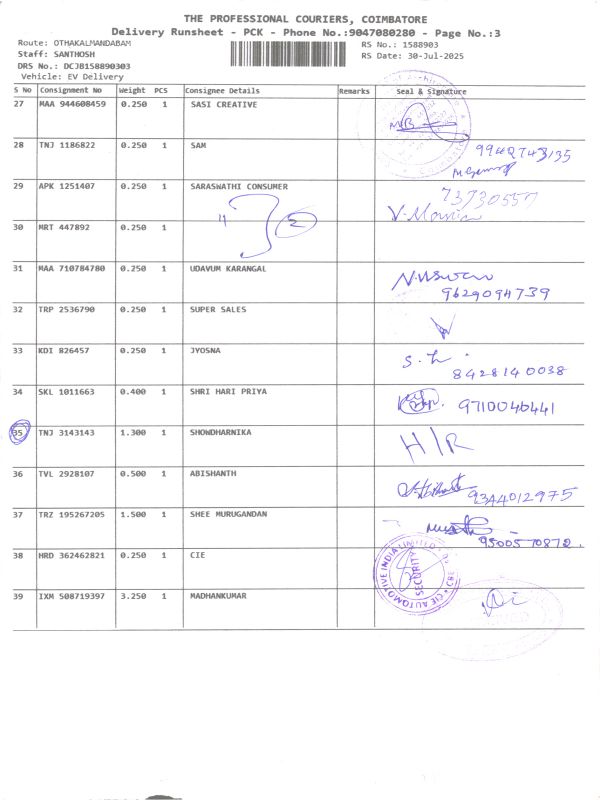 THE PROFESSIONAL COURIERS, COIMBATORE
Delivery Runsheet - PCK - Phone No.:9047080280 - Page No.:3
Route: OTHAKALMANDABAM
Staff: SANTHOSH
DRS No.: DCJ8158890303
Vehicle: EV Delivery
RS No.: 1588903
RS Date: 30-Jul-2025
S No Consignment No Weight PCS Consignee Details Remarks Seal & Signature
27 MAA 944608459 0.250 1 SASI CREATIVE
28 TNJ 1186822 0.250 1 SAM
29 APK 1251407 0.250 1 SARASWATHI CONSUMER
73730557
30 MRT 447892 0.250 1
31 MAA 710784780 0.250 1 UDAVUM KARANGAL
9629094739
32 TRP 2536790 0.250 1 SUPER SALES
33 KDI 826457 0.250 1 JYOSNA
8428140038
34 SKL 1011663 0.400 1 SHRI HARI PRIYA
9710046441
35 TNJ 3143143 1.300 1 SHONDHARNIKA H/R
36 TVL 2928107 0.500 1 ABISHANTH
9344012975
37 TRZ 195267205 1.500 1 SHEE MURUGANDAN
9500570872.
38 HRD 362462821 0.250 1 CIE
CIE AUTOMOTIVE INDIA LIMITED CBE
SECURITY
39 IXM 508719397 3.250 1 MADHANKUMAR